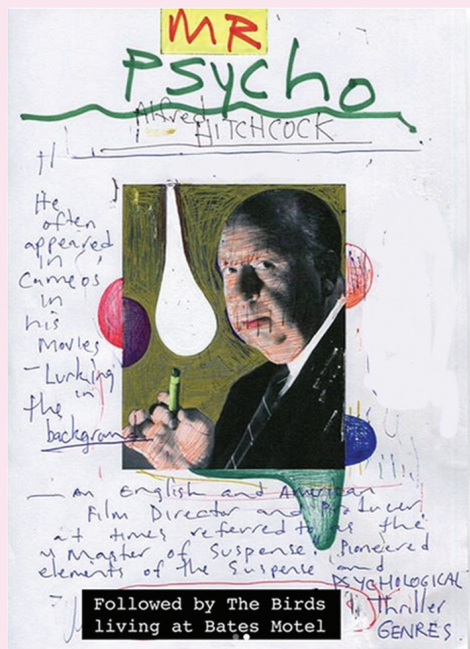 MR
PSycho
Alfred
HITCHCOCK
He
often
appeared
in
Cameos
in
his
Movies
- Lurking
in
the
background
— An English and American
Film Director and Producer
at times referred to as the
"Master of Suspense." Pioneered
elements of the Suspense and
PSYCHOLOGICAL
Thriller
GENRES.
Followed by The Birds
living at Bates Motel